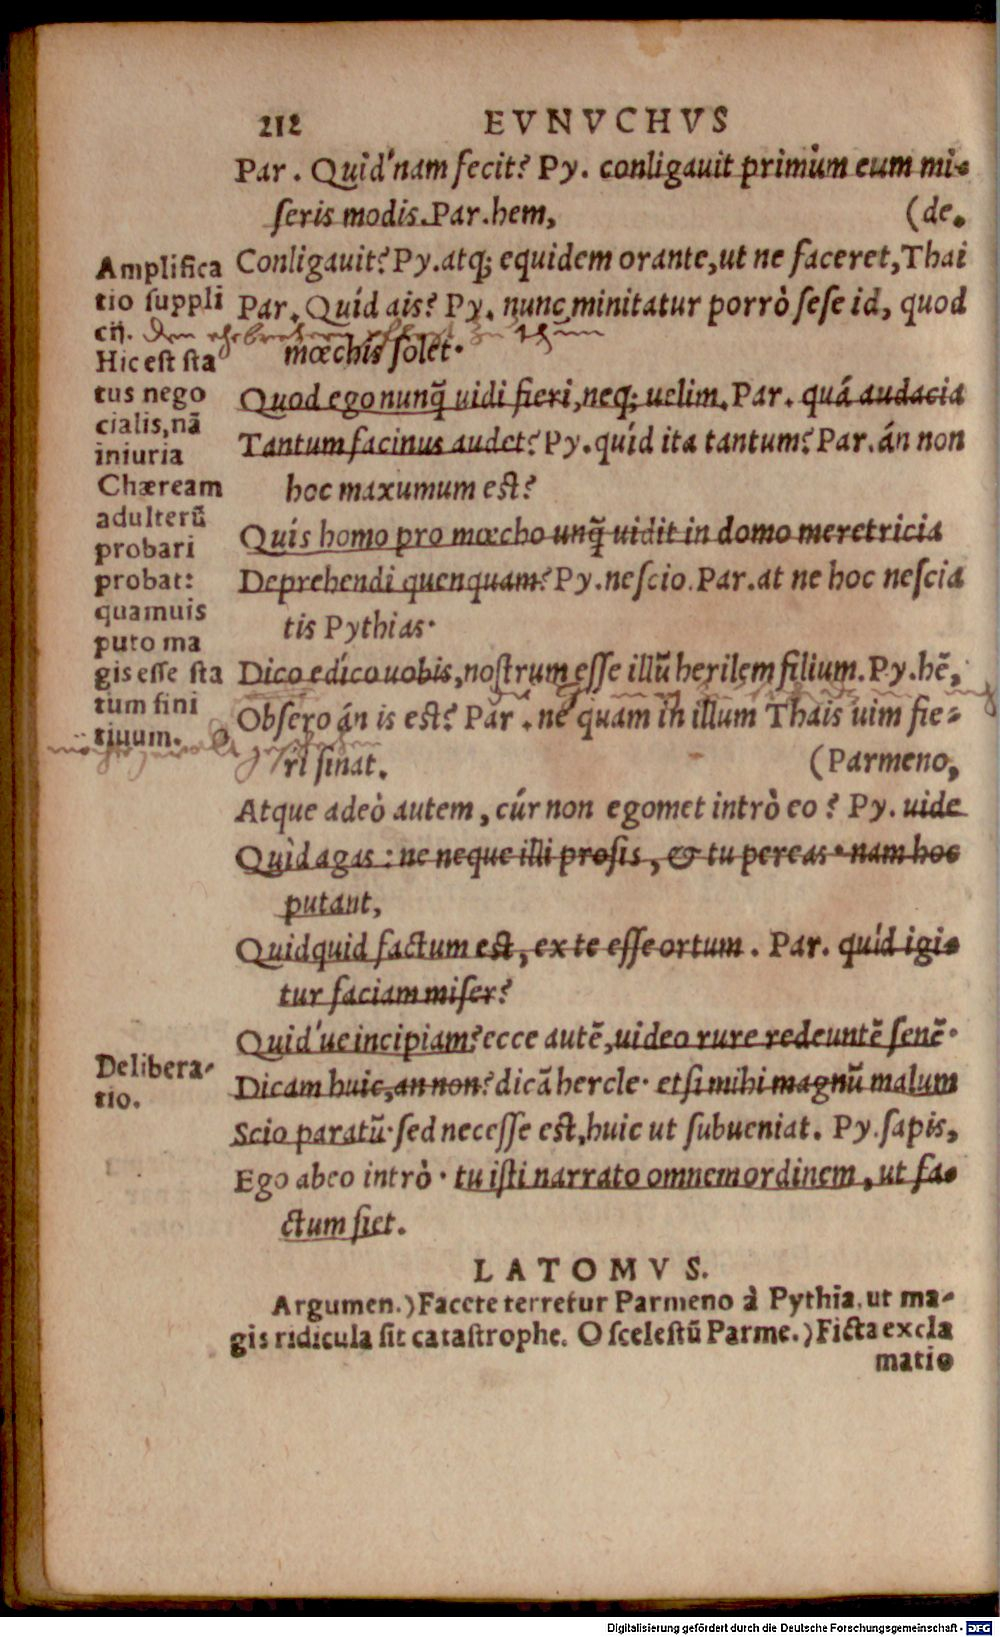 212 EVNVCHVS
Par. Quid'nam fecit? Py. conligauit primùm eum mi-
seris modis. Par. hem, (de.
Conligauit? Py. atq; equidem orante, ut ne faceret, Thai
Par. Quíd ais? Py. nunc minitatur porrò sese id, quod
mœchis solet.
Quod ego nunq̃ uidi fieri, neq; uelim. Par. quá audacia
Tantum facinus audet? Py. quíd ita tantum? Par. án non
hoc maxumum est?
Quis homo pro mœcho unq̃ uidit in domo meretricia
Deprehendi quenquam? Py. nescio. Par. at ne hoc nescia
tis Pythias.
Dico edíco uobis, nostrum esse illũ herilem filium. Py. hẽ,
Obsero án is est? Par. ne quam in illum Thais uim fie-
ri sinat. (Parmeno,
Atque adeò autem, cúr non egomet intrò eo? Py. uide
Quid agas: ne neque illi prosis, & tu pereas. nam hoc
putant,
Quidquid factum est, ex te esse ortum. Par. quíd igi-
tur faciam miser?
Quid'ue incipiam? ecce autẽ, uideo rure redeuntẽ senẽ.
Dicam huic, an non? dicã hercle. etsi mihi magnũ malum
Scio paratũ. sed necesse est, huic ut subueniat. Py. sapis,
Ego abeo intrò. tu isti narrato omnem ordinem, ut fa-
ctum siet.
Amplifica
tio suppli
cij. den ehebrechern pfleget zu thun
Hic est sta
tus nego
cialis, nã
iniuria
Chæream
adulterũ
probari
probat:
quamuis
puto ma
gis esse sta
tum fini
tiuum.
Delibera-
tio.
LATOMVS.
Argumen.) Facete terretur Parmeno à Pythia, ut ma-
gis ridicula sit catastrophe. O scelestũ Parme.) Ficta excla
matio
Digitalisierung gefördert durch die Deutsche Forschungsgemeinschaft - DFG